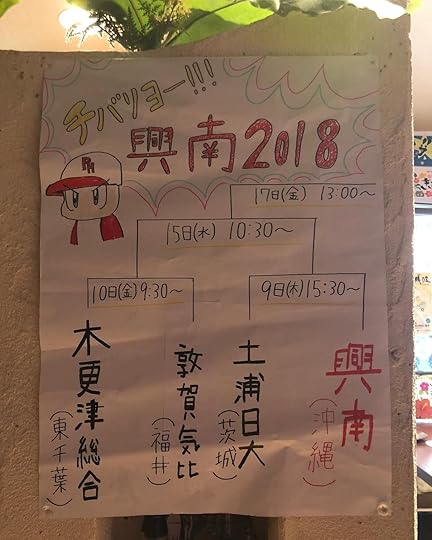 チバリヨー!!!
興南2018
17日(金) 13:00～
15日(水) 10:30～
10日(金)9:30～
9日(木)15:30～
木更津総合
(東千葉)
敦賀気比
(福井)
土浦日大
(茨城)
興南
(沖縄)